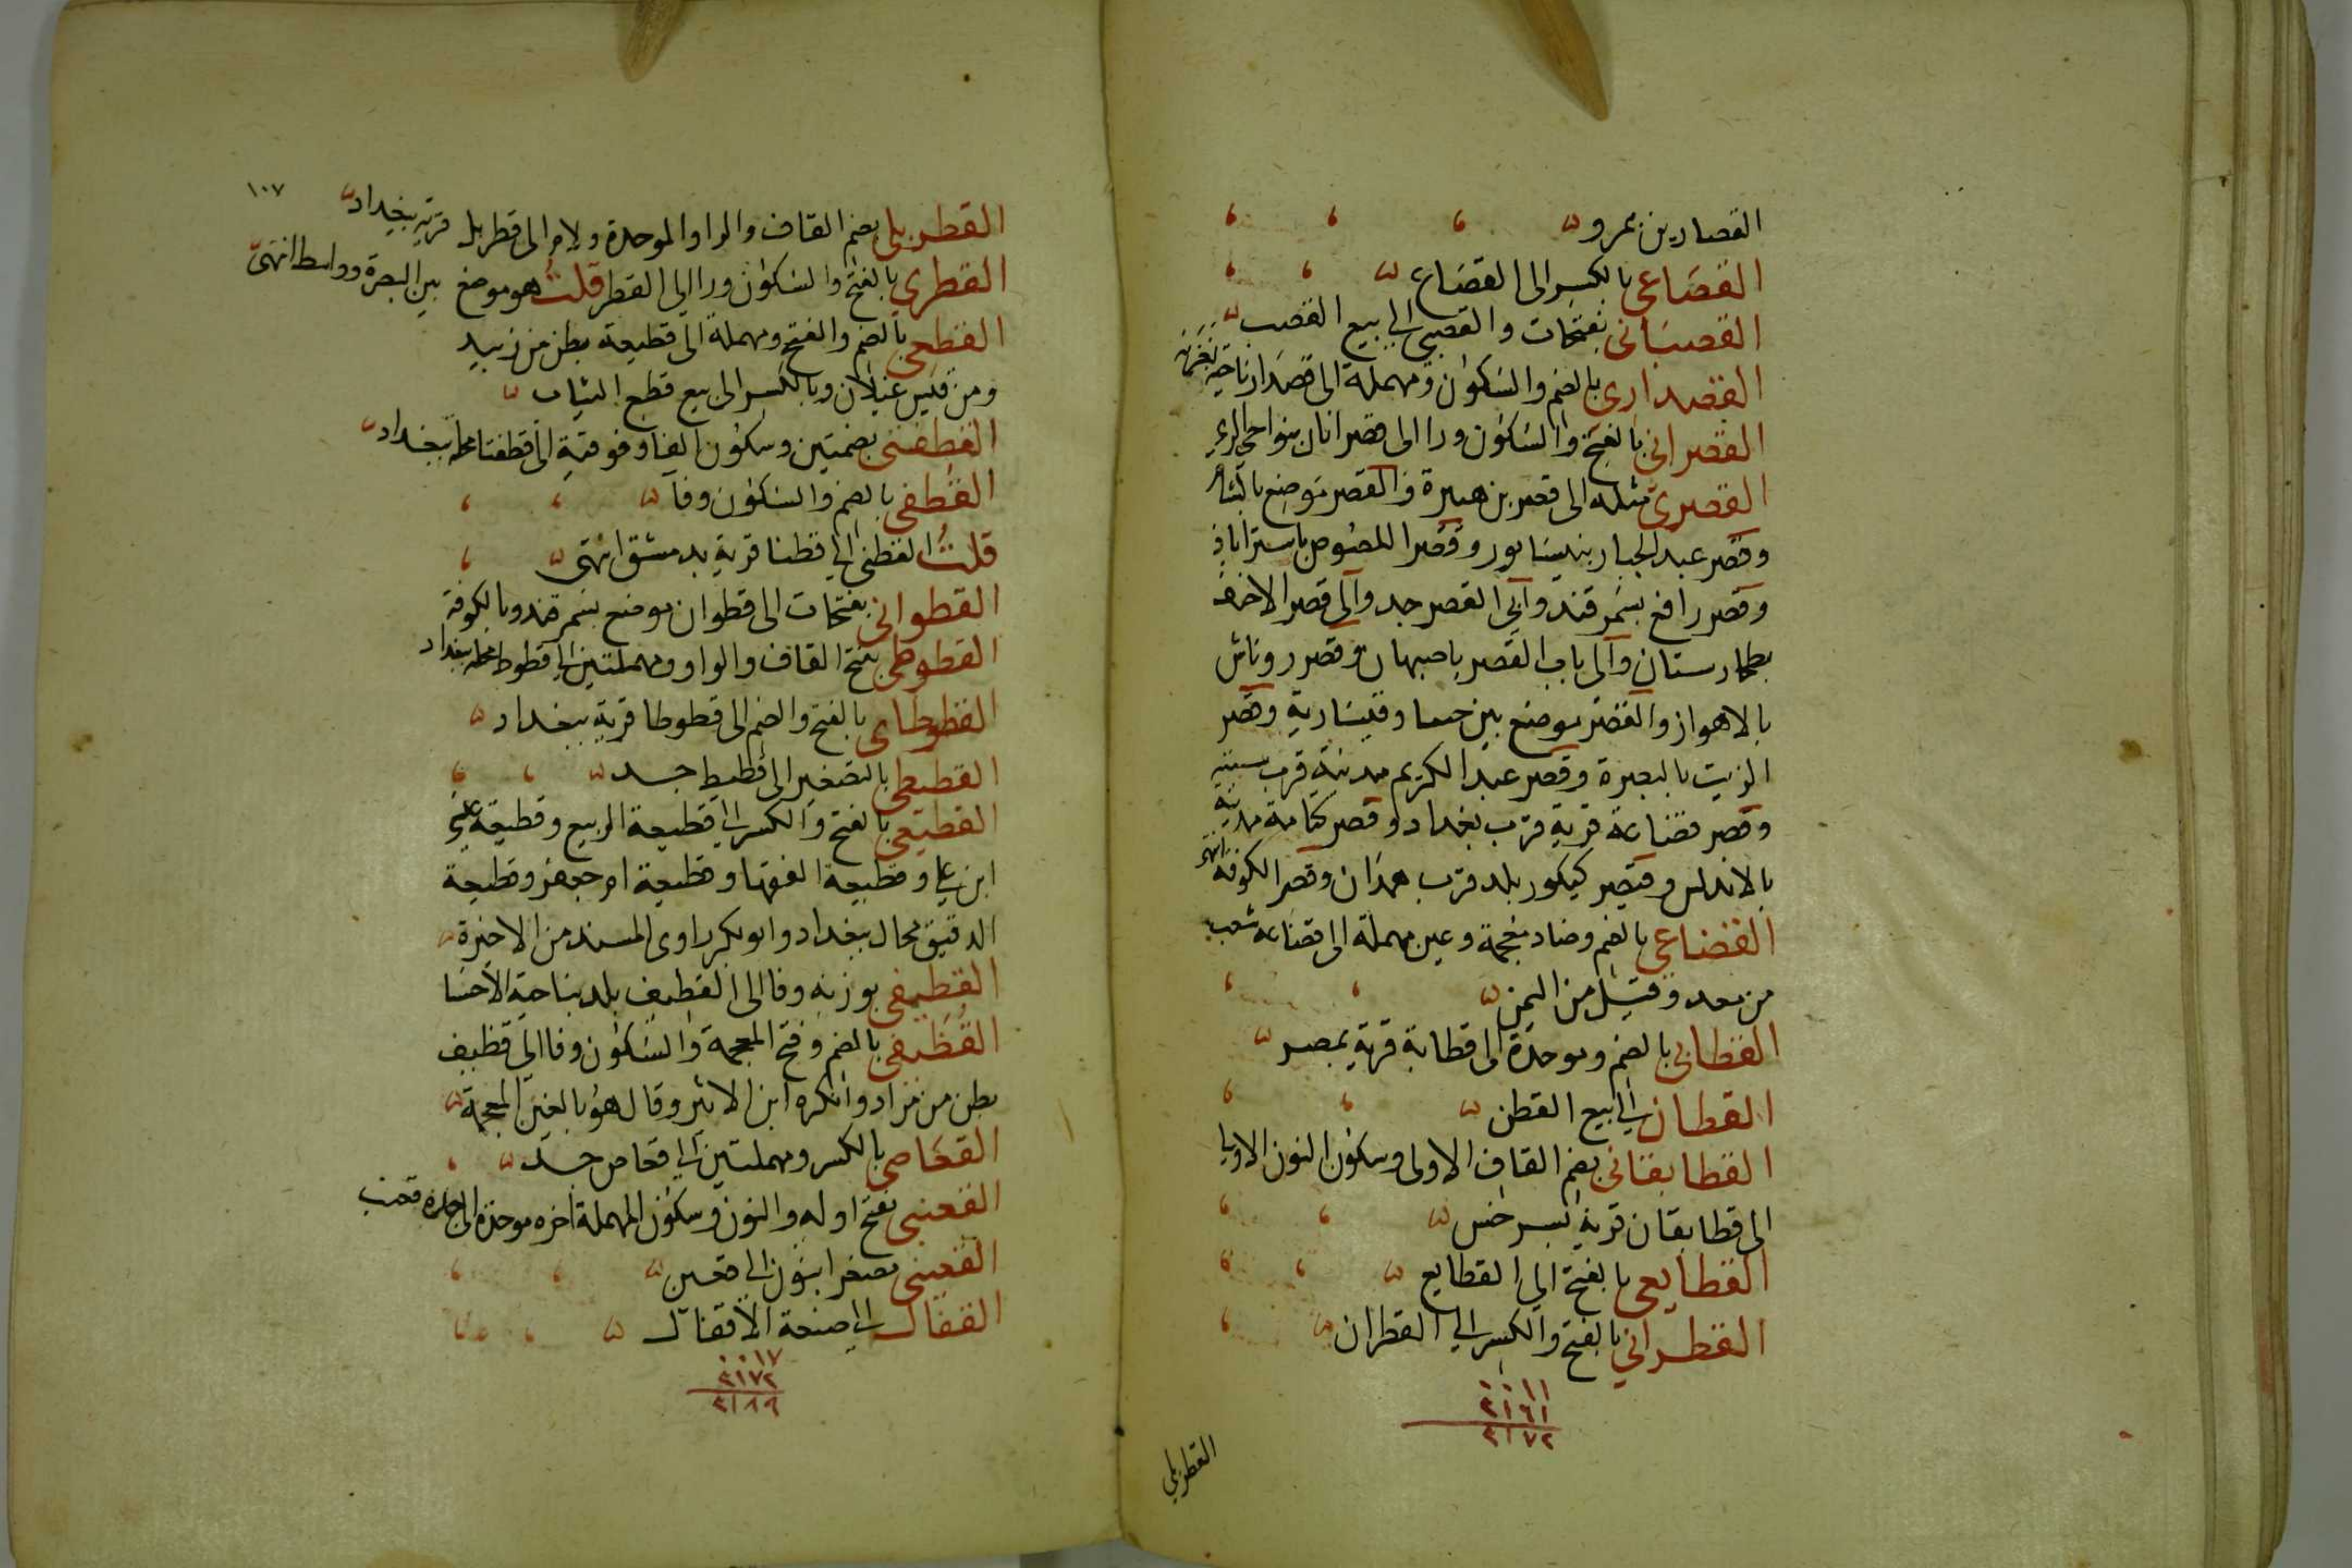 القصارين بمرو
القصَاعى بالكسر الى القصَاع
القصبَانى بفتحات والقصبى الى بيع القصب
القصدارى بالضم والسكون ومهملة الى قصدار ناحية
القصرانى بالفتح والسكون ورا الى قصرانان بنواحى الرى
القصرى مثله الى قصر بن هبيرة والقصر موضع
وقصر عبد الجبار بنيسابور وقصر اللصوص باستراباذ
وقصر رافع بسمرقند وابى القصر جد والى قصر الاخنف
بطخارستان والى باب القصر باصبهان وقصر روناش
بالاهواز والقصر موضع بين حيفا وقيسارية وقصر
الزيت بالبصرة وقصر عبد الكريم مدينة قرب سبتة
وقصر قضاعة قرية قرب بغداد وقصر كتامة مدينة
بالاندلس وقصر كيكور بلد قرب همدان وقصر الكوفة انتهى
القضاعى بالضم وضاد معجمة وعين مهملة الى قضاعة شعب
من معد وقيل من اليمن
القطابى بالضم وموحدة الى قطابة قرية بمصر
القطان الى بيع القطن
القطابقانى بضم القاف الاولى وسكون النون
الى قطابقان قرية بسرخس
القطايعى بالفتح الى القطايع
القطرانى بالفتح والكسر الى القطران
٠٠١١
٢١٦١
٢١٧٢
القطربلي
١٠٧
القطربلى بضم القاف والرا والموحدة ولام الى قطربل قرية ببغداد
القطرى بالفتح والسكون ورا الى القطر قلت هو موضع بين البصرة وواسط انتهى
القطعى بالضم والفتح ومهملة الى قطيعة بطن من زبيد
ومن قيس عيلان وبالكسر الى بيع قطع الثياب
القطفتى بضمتين وسكون الفا وفوقية الى قطفتا محلة ببغداد
القطفى بالضم والسكون وفآ
قلت القطنى الى قطنا قرية بدمشق انتهى
القطوانى بفتحات الى قطوان موضع بسمرقند وبالكوفة
القطوطى بفتح القاف والواو ومهملتين الى قطوطا محلة ببغداد
القطوطاى بالفتح والضم الى قطوطا قرية ببغداد
القطيطى بالتصغير الى قطيط جد
القطيعى بالفتح والكسر الى قطيعة الربيع وقطيعة عيسى
ابن على وقطيعة الفقها وقطيعة ام جعفر وقطيعة
الدقيق محال ببغداد وابو بكر راوى المسند من الاخيرة
القطيفى بوزنه وفا الى القطيف بلد بناحية الأحسا
القُظَيفى بالضم وفتح المعجمة والسكون وفا الى قظيف
بطن من مراد وانكره ابن الاثير وقال هو بالغين المعجمة
القعَاصى بالكسر ومهملتين الى قعاص جد
القعنبى بفتح اوله والنون وسكون المهملة اخره موحدة الى جده قعنب
القعينى مصغرا بنون الى قعين
القفال الى صنعة الأقفال
٠٠١٧
٢١٧٢
٢١٨٩